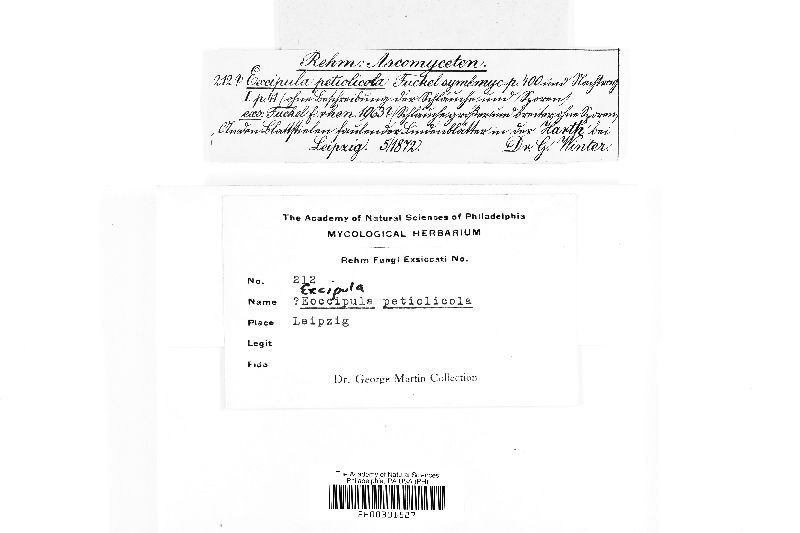 Rehm: Ascomyceten.
212. Excipula petiolicola Fuckel symb myc p. 400 und Nachtrag
I. p. (ohne Beschreibung der Schläuche und Sporen)
exs: Fuckel f. rhen. 1963? (Schläuche breiter, ohne Sporen,
An den Blattstielen faulender Lindenblätter in der Harth bei
Leipzig. 5/1872. Dr. G. Winter.
The Academy of Natural Sciences of Philadelphia
MYCOLOGICAL HERBARIUM
Rehm Fungi Exsiccati No.
No. 212
Excipula
Name ?Eoccipula peticlicola
Place Leipzig
Legit
Fide
Dr. George Martin Collection
The Academy of Natural Sciences
Philadelphia, PA USA (PH)